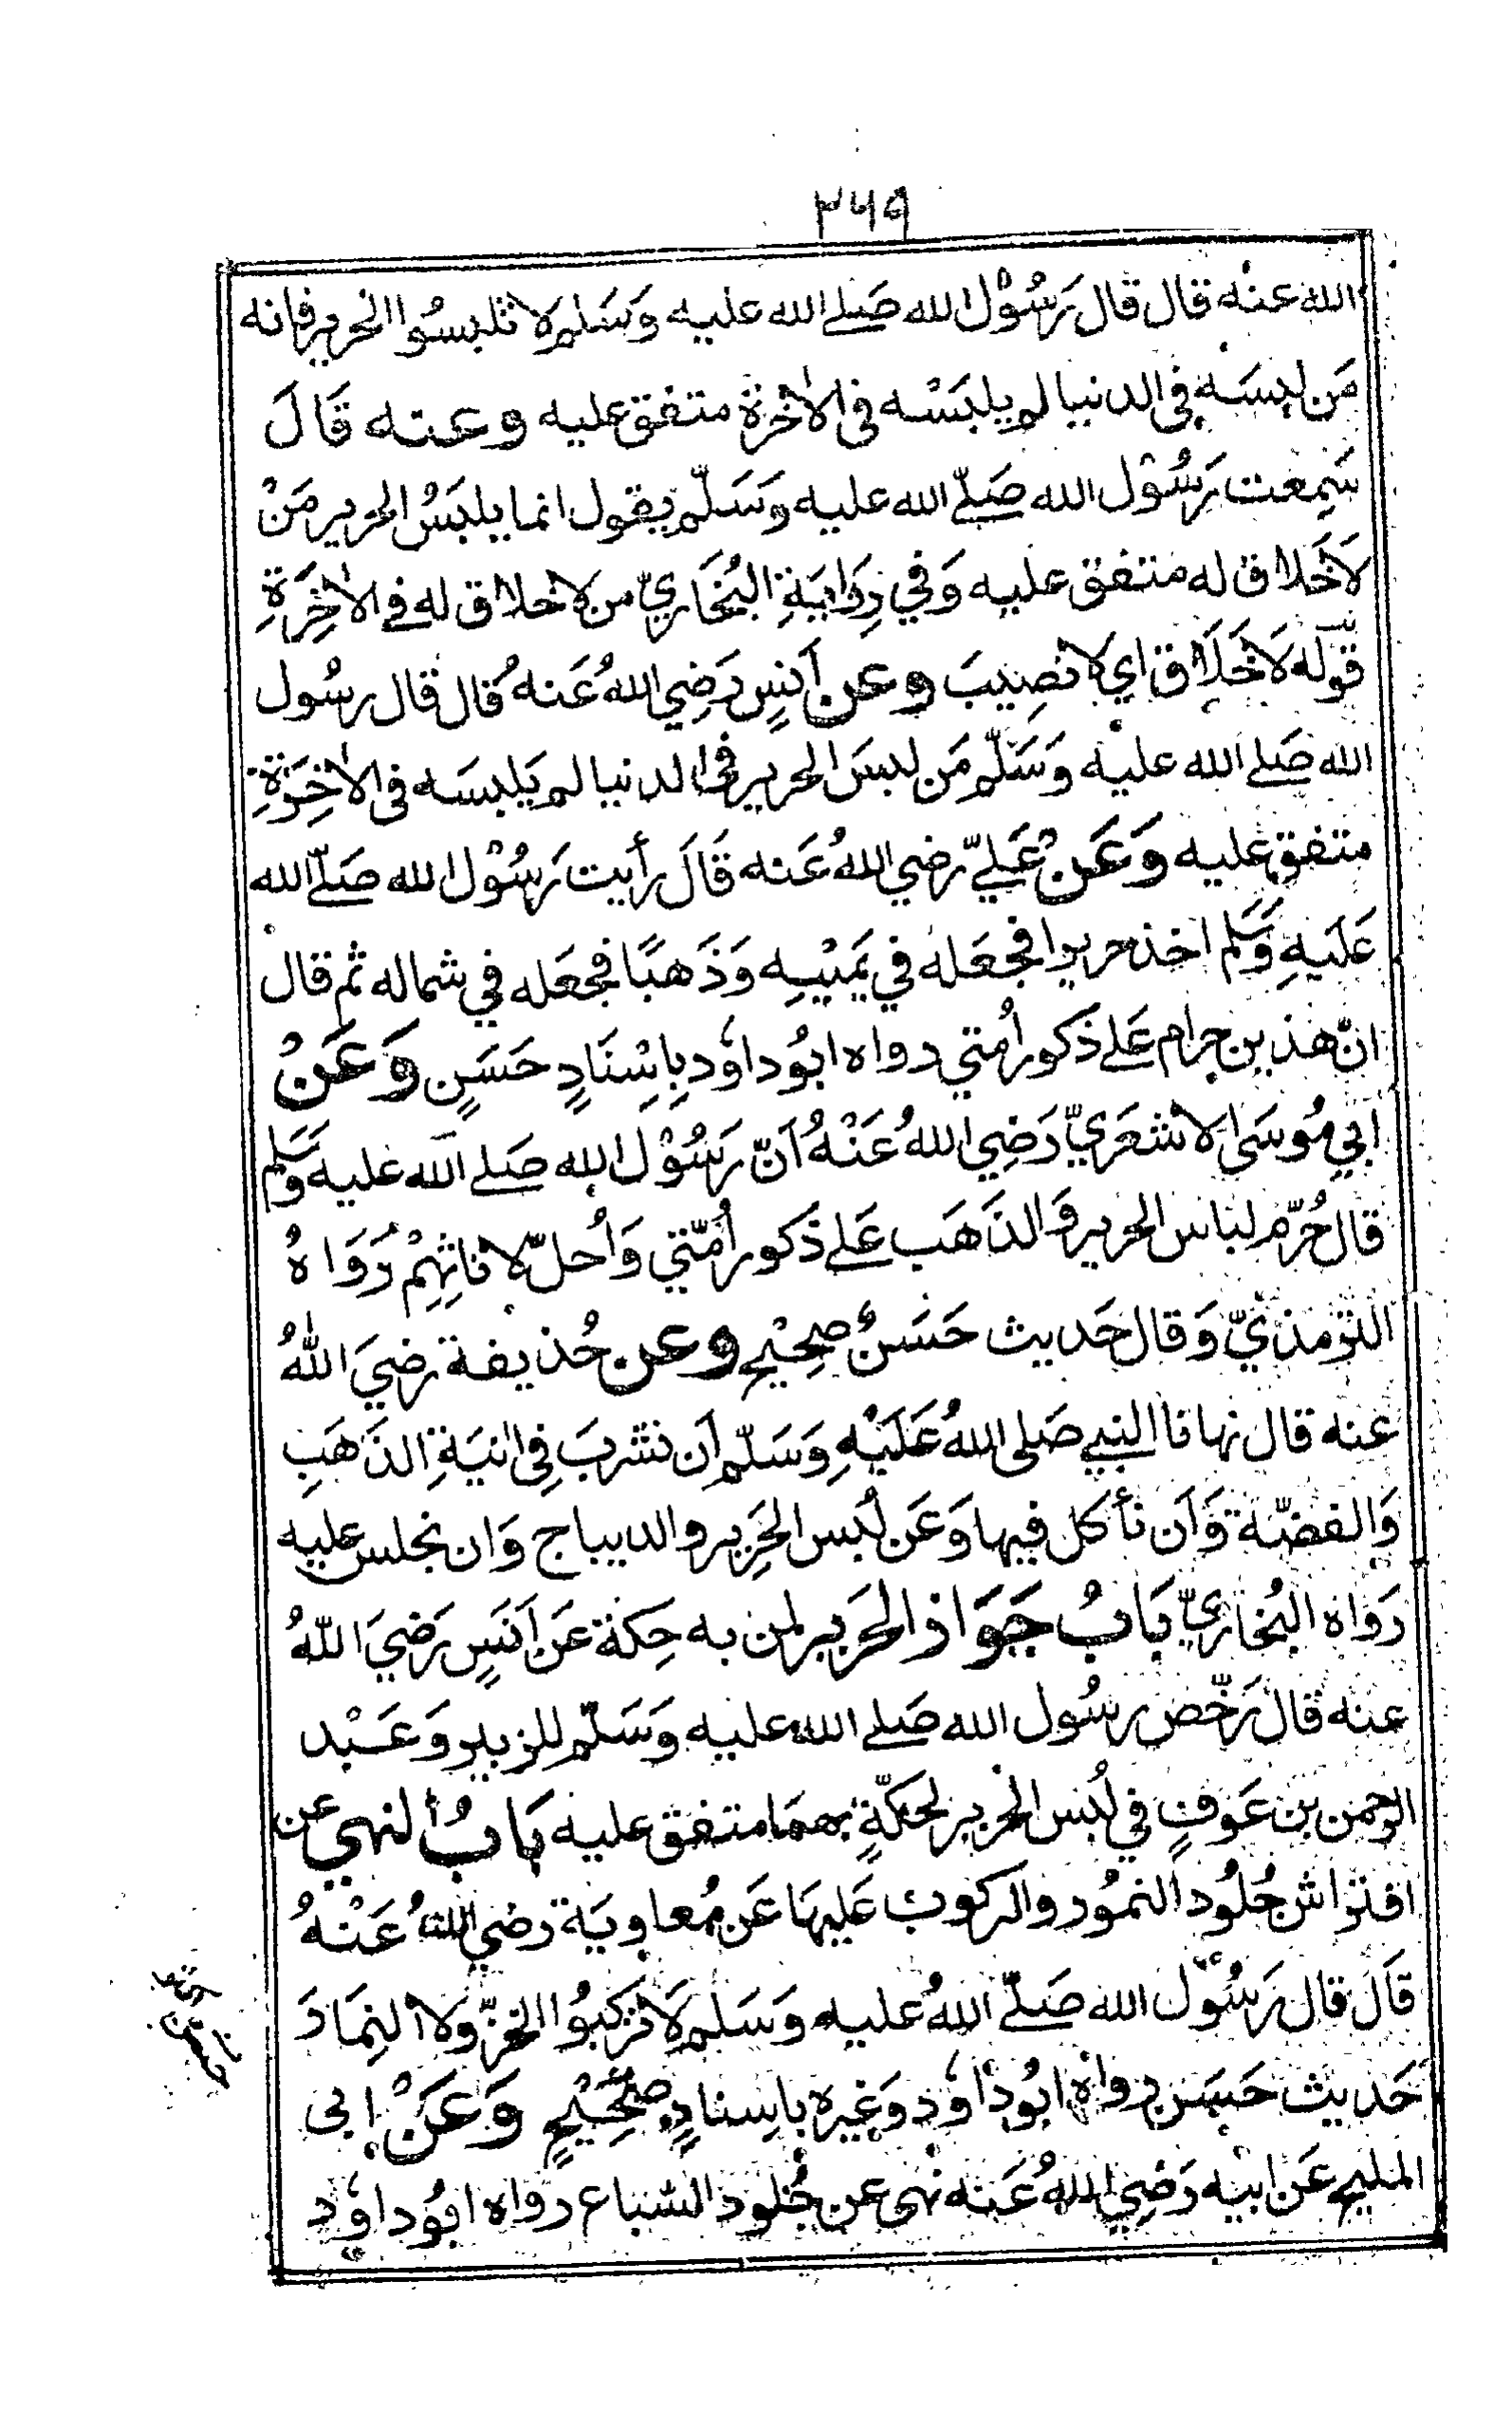 ۲۶۹
الله عنه قال قال رَسُوْل الله صَلے الله عليه وَسَلم لا تلبسُوا الحرير فانه
مَن لبسَه في الدنيا لم يلبَسْه في الاٰخرة متفق عليه وعنه قَالَ
سَمِعت رَسُوْل الله صَلّے الله عليه وَسَلّم يقول انما يلبَسُ الحرير مَنْ
لاَ خَلاق له متفق عليه وَفي رِوَايَةِ البُخَاريّ من لا خلاق له في الاٰخِرَةِ
قوله لاَ خَلَاق اي لا نصِيبَ وعن أنسٍ رَضِي اللهُ عَنهُ قال قال رسُول
الله صَلے الله عليه وَسَلّم مَن لبسَ الحرير في الدنيا لم يَلبسَه في الاٰخِرَةِ
متفق عليه وَعَنْ عَليّ رضي اللهُ عَنه قَالَ رأيت رَسُوْل الله صَلّے الله
عَلَيهِ وَسَلم اخذ حريرا فجعَله في يَمينِه وَذَهبًا فجعَله في شماله ثم قال
انّ هذين حرام عَلے ذكور أُمتي رواه ابُو داوُد بِاِسْنَادٍ حَسَنٍ وَعَنْ
ابي مُوسَى الاشعَريّ رَضِي اللهُ عَنْهُ اَنّ رَسُوْل الله صَلے الله عليه وَسَلم
قال حُرّم لباس الحرير وَالذَهَب عَلے ذَكور اُمّتي وَاُحلّ لاناثِهِمْ رَوَاهُ
الترمذيّ وَقال حَديث حَسَنٌ صحِيْح وعن حُذيفة رضيَ اللهُ
عنه قال نهانا النبي صَلى اللهُ عَلَيْهِ وَسَلّم اَن نشربَ في اٰنيَةِ الذَهَبِ
وَالفضّة وَاَن نأكل فيها وَعَن لُبس الحَرِير والديباج وَان نجلس عليه
رَوَاه البُخاريّ بَابُ جَوَاز الحَرير لمن به حِكة عَن اَنَسٍ رَضيَ اللهُ
عنه قال رَخّص رسُول الله صَلے الله عليه وَسَلّم للزبير وَعَبْد
الرحمن بن عَوفٍ في لُبس الحرير لحكّةٍ بهمَا متفق عليه بَابُ النهي عن
افتراش جُلُود النمُور والركوب عَليهَا عَن مُعاويَة رضي اللهُ عَنْهُ
قَالَ قال رَسُوْل الله صَلّے اللهُ عليه وَسَلم لاَ تركبُوا الخزّ ولا النِمَارَ
حَديث حَسَن رواه ابُو داوُد وَغيره باسنادٍ صَحِيْحٍ وَعَنْ ابي
المليح عَن ابيْه رَضِي اللهُ عَنه نهى عن جُلود السّباع رواه ابُو داوُد